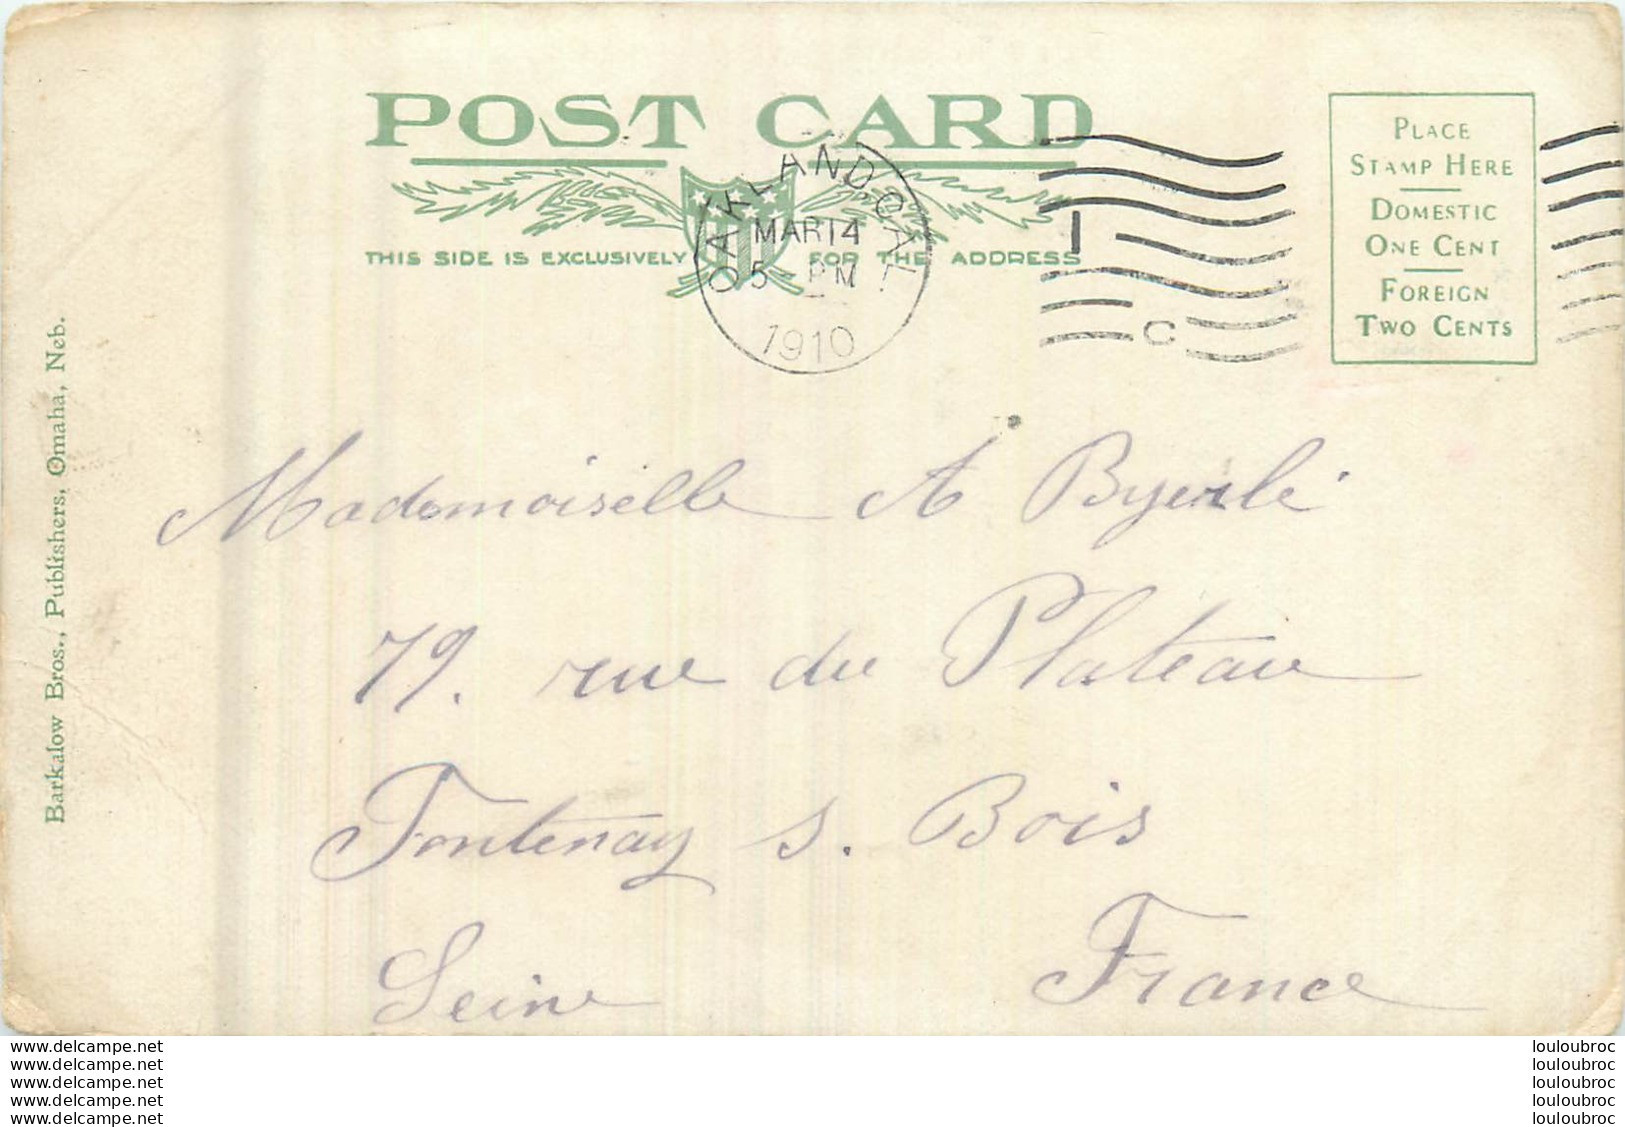 POST CARD
THIS SIDE IS EXCLUSIVELY FOR THE ADDRESS
OAKLAND, CAL.
MAR 14
5 PM
1910
1
C
PLACE
STAMP HERE
DOMESTIC
ONE CENT
FOREIGN
TWO CENTS
Barkalow Bros., Publishers, Omaha, Neb.
Mademoiselle A
79. rue du Plateau
Fontenay s. Bois
Seine France
www.delcampe.net
www.delcampe.net
www.delcampe.net
www.delcampe.net
www.delcampe.net
louloubroc
louloubroc
louloubroc
louloubroc
louloubroc